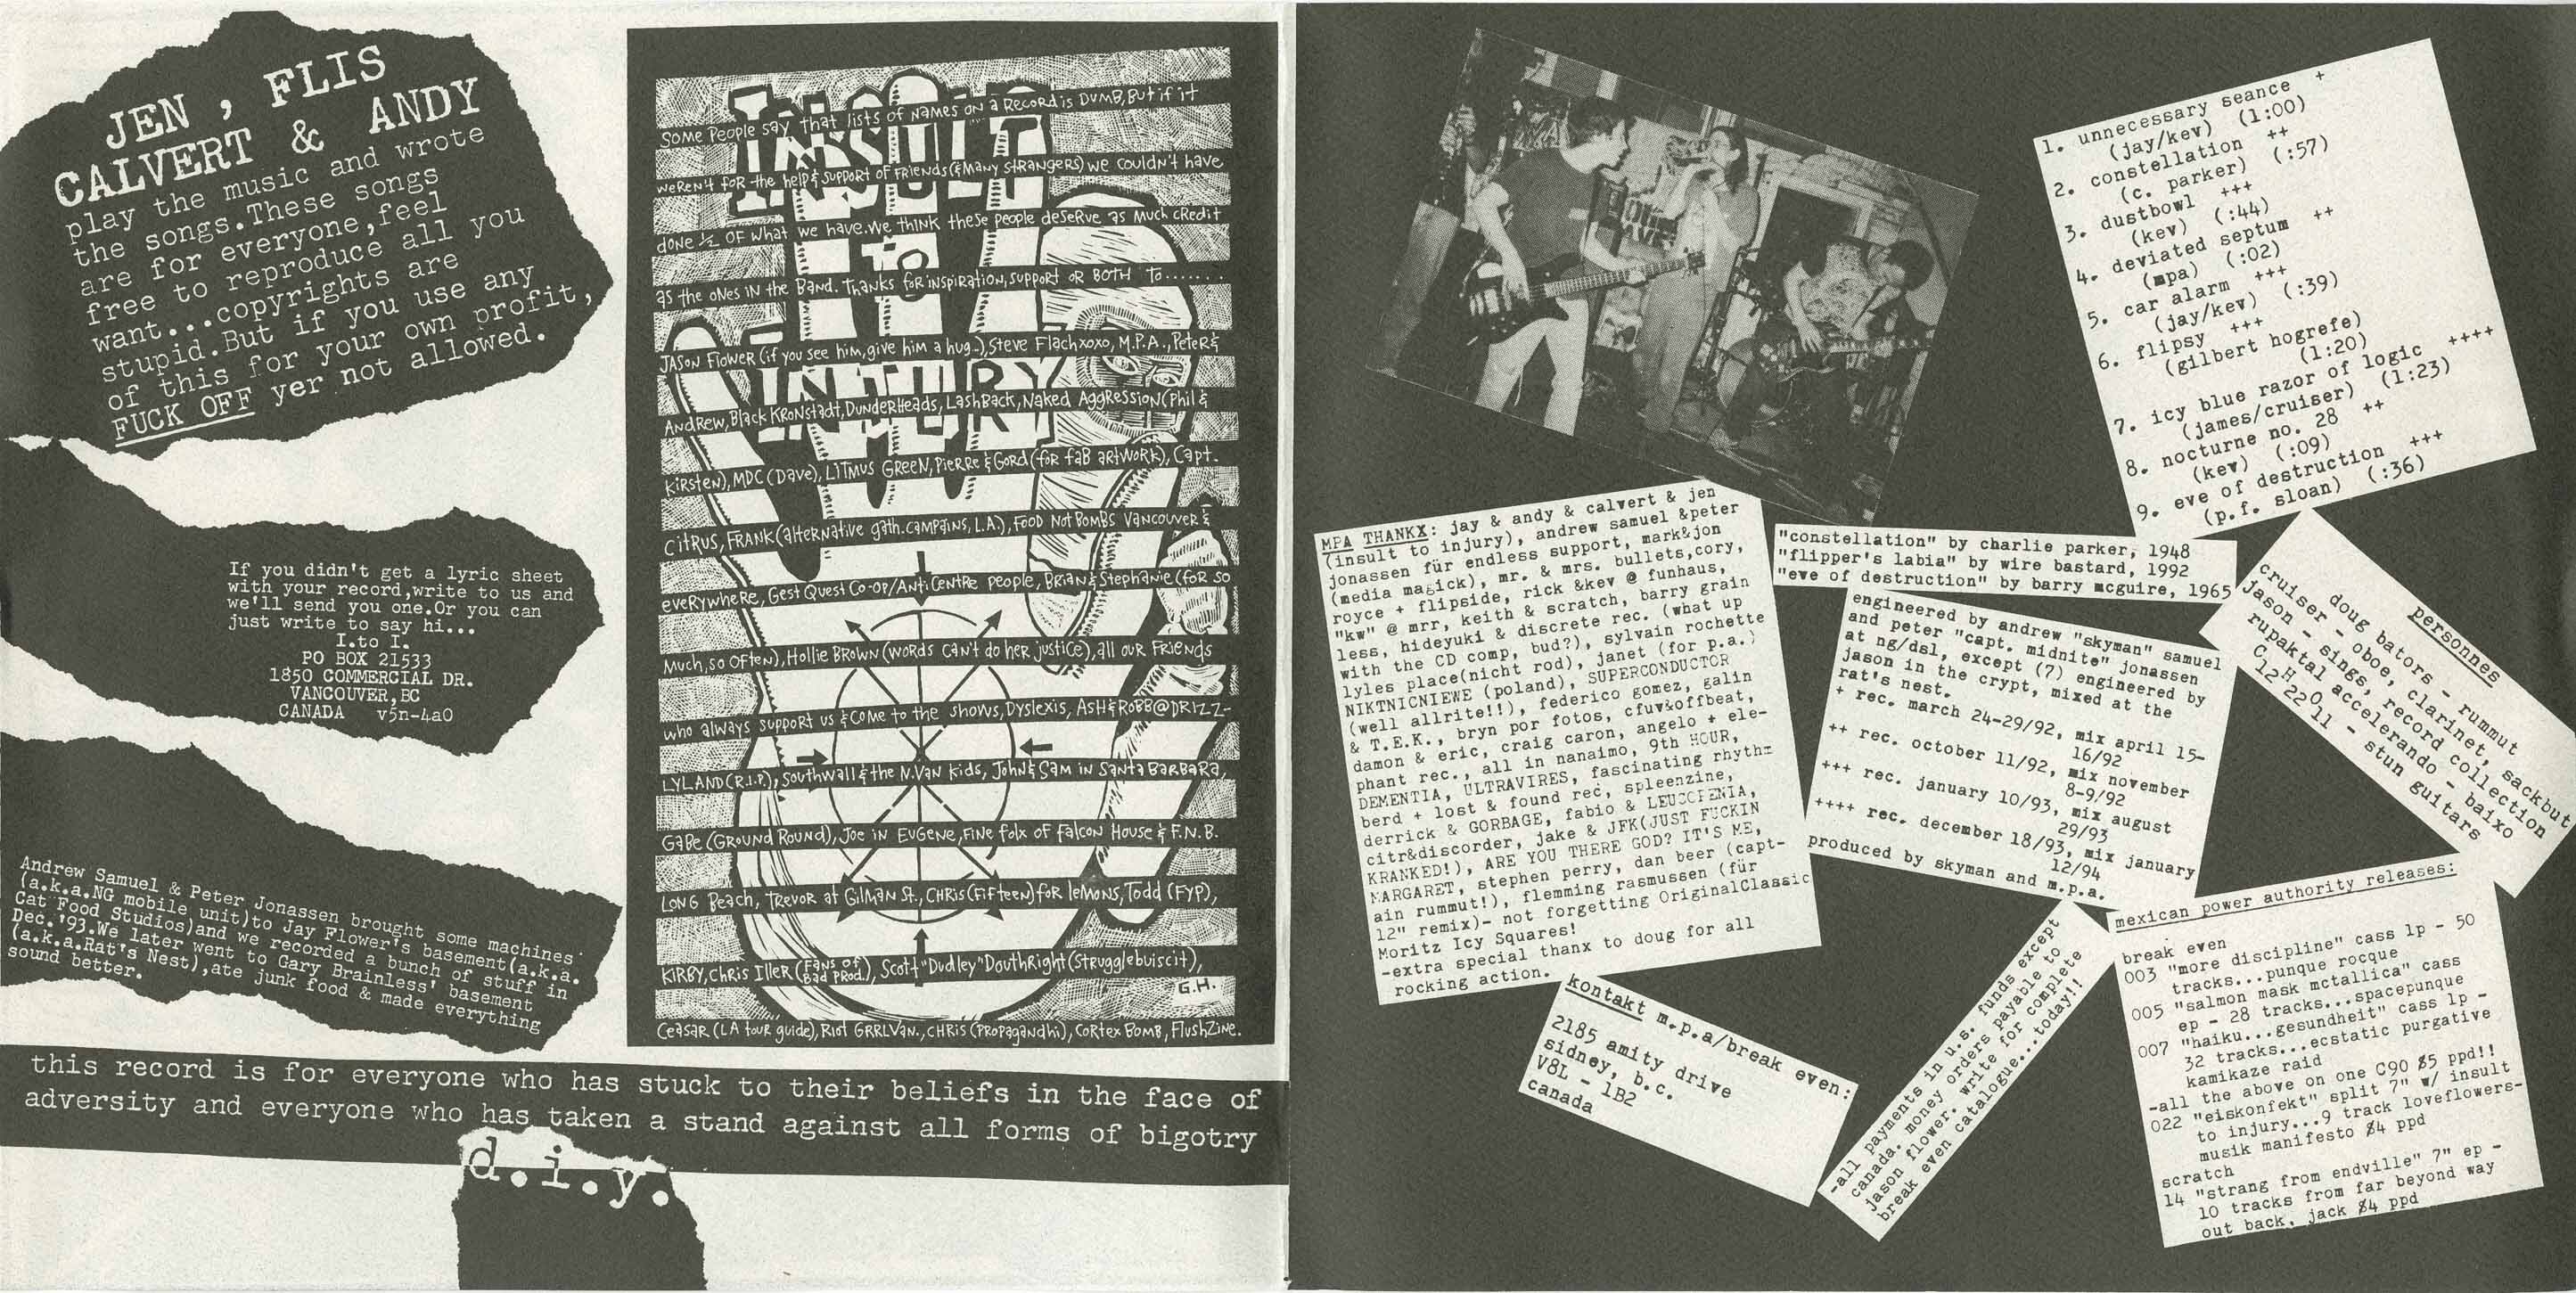 JEN , FLIS
CALVERT & ANDY
play the music and wrote
the songs.These songs
are for everyone,feel
free to reproduce all you
want...copyrights are
stupid.But if you use any
of this for your own profit,
FUCK OFF yer not allowed.
If you didn't get a lyric sheet
with your record,write to us and
we'll send you one.Or you can
just write to say hi...
I.to I.
PO BOX 21533
1850 COMMERCIAL DR.
VANCOUVER,BC
CANADA v5n-4a0
Andrew Samuel & Peter Jonassen brought some machines
(a.k.a.NG mobile unit)to Jay Flower's basement(a.k.a.
Cat Food Studios)and we recorded a bunch of stuff in
Dec.'93.We later went to Gary Brainless' basement
(a.k.a.Rat's Nest),ate junk food & made everything
sound better.
this record is for everyone who has stuck to their beliefs in the face of
adversity and everyone who has taken a stand against all forms of bigotry
d.i.y.
INSULT
to
INJURY
Some People say that lists of names on a record is dumb, but if it
weren't for the help & support of friends (& many strangers) we couldn't have
done ½ of what we have. We think these people deserve as much credit
as the ones in the band. Thanks for inspiration, support or both to.......
Jason Flower (if you see him, give him a hug..), Steve Flachxoxo, M.P.A., Peter &
Andrew, Black Kronstadt, Dunderheads, Lashback, Naked Aggression (Phil &
Kirsten), MDC (Dave), Litmus Green, Pierre & Gord (for fab artwork), Capt.
Citrus, Frank (alternative gath. campains, L.A.), Food Not Bombs Vancouver &
everywhere, Gest Quest Co-op/Anti Centre people, Brian & Stephanie (for so
much, so often), Hollie Brown (words can't do her justice), all our friends
who always support us & come to the shows, Dyslexis, Ash & Robb @ Drizz-
lyland (R.I.P.), Southwall & the N.Van kids, John & Sam in Santa Barbara,
Gabe (Ground Round), Joe in Eugene, Fine folx of Falcon House & F.N.B.
Long Beach, Trevor at Gilman St., Chris (Fifteen) for lemons, Todd (FYP),
Kirby, Chris Iller (Fans of Bad Prod.), Scott "Dudley" Douthright (Strugglebuiscit),
G.H.
Ceasar (LA tour guide), Riot Grrl Van., Chris (Propagandhi), Cortex Bomb, FlushZine.
1. unnecessary seance +
(jay/kev) (1:00)
2. constellation ++
(c. parker) (:57)
3. dustbowl +++
(kev) (:44)
4. deviated septum ++
(mpa) (:02)
5. car alarm +++
(jay/kev) (:39)
6. flipsy +++
(gilbert hogrefe)
(1:20)
7. icy blue razor of logic ++++
(james/cruiser) (1:23)
8. nocturne no. 28 ++
(kev) (:09)
9. eve of destruction +++
(p.f. sloan) (:36)
MPA THANKX: jay & andy & calvert & jen
(insult to injury), andrew samuel &peter
jonassen für endless support, mark&jon
(media magick), mr. & mrs. bullets,cory,
royce + flipside, rick &kev @ funhaus,
"kw" @ mrr, keith & scratch, barry grain
less, hideyuki & discrete rec. (what up
with the CD comp, bud?), sylvain rochette
lyles place(nicht rod), janet (for p.a.)
NIKTNICNIEWE (poland), SUPERCONDUCTOR
(well allrite!!), federico gomez, galin
& T.E.K., bryn por fotos, cfuv&offbeat,
damon & eric, craig caron, angelo + ele-
phant rec., all in nanaimo, 9th HOUR,
DEMENTIA, ULTRAVIRES, fascinating rhythm
berd + lost & found rec, spleenzine,
derrick & GORBAGE, fabio & LEUCOPENIA,
citr&discorder, jake & JFK(JUST FUCKIN
KRANKED!), ARE YOU THERE GOD? IT'S ME,
MARGARET, stephen perry, dan beer (capt-
ain rummut!), flemming rasmussen (für
12" remix)- not forgetting OriginalClassic
Moritz Icy Squares!
-extra special thanx to doug for all
rocking action.
"constellation" by charlie parker, 1948
"flipper's labia" by wire bastard, 1992
"eve of destruction" by barry mcguire, 1965
engineered by andrew "skyman" samuel
and peter "capt. midnite" jonassen
at ng/dsl, except (7) engineered by
jason in the crypt, mixed at the
rat's nest.
+ rec. march 24-29/92, mix april 15-
16/92
++ rec. october 11/92, mix november
8-9/92
+++ rec. january 10/93, mix august
29/93
++++ rec. december 18/93, mix january
12/94
produced by skyman and m.p.a.
personnes
doug bators - rummut
cruiser - oboe, clarinet, sackbut
jason - sings, record collection
rupaktal accelerando - baixo
C12H22O11 - stun guitars
kontakt m.p.a/break even:
2185 amity drive
sidney, b.c.
V8L - 1B2
canada
-all payments in u.s. funds except
canada. money orders payable to
jason flower. write for complete
break even catalogue...today!!
mexican power authority releases:
break even
003 "more discipline" cass lp - 50
tracks...punque rocque
005 "salmon mask mctallica" cass
ep - 28 tracks...spacepunque
007 "haiku...gesundheit" cass lp -
32 tracks...ecstatic purgative
kamikaze raid
-all the above on one C90 $5 ppd!!
022 "eiskonfekt" split 7" w/ insult
to injury...9 track loveflowers-
musik manifesto $4 ppd
scratch
14 "strang from endville" 7" ep -
10 tracks from far beyond way
out back, jack $4 ppd